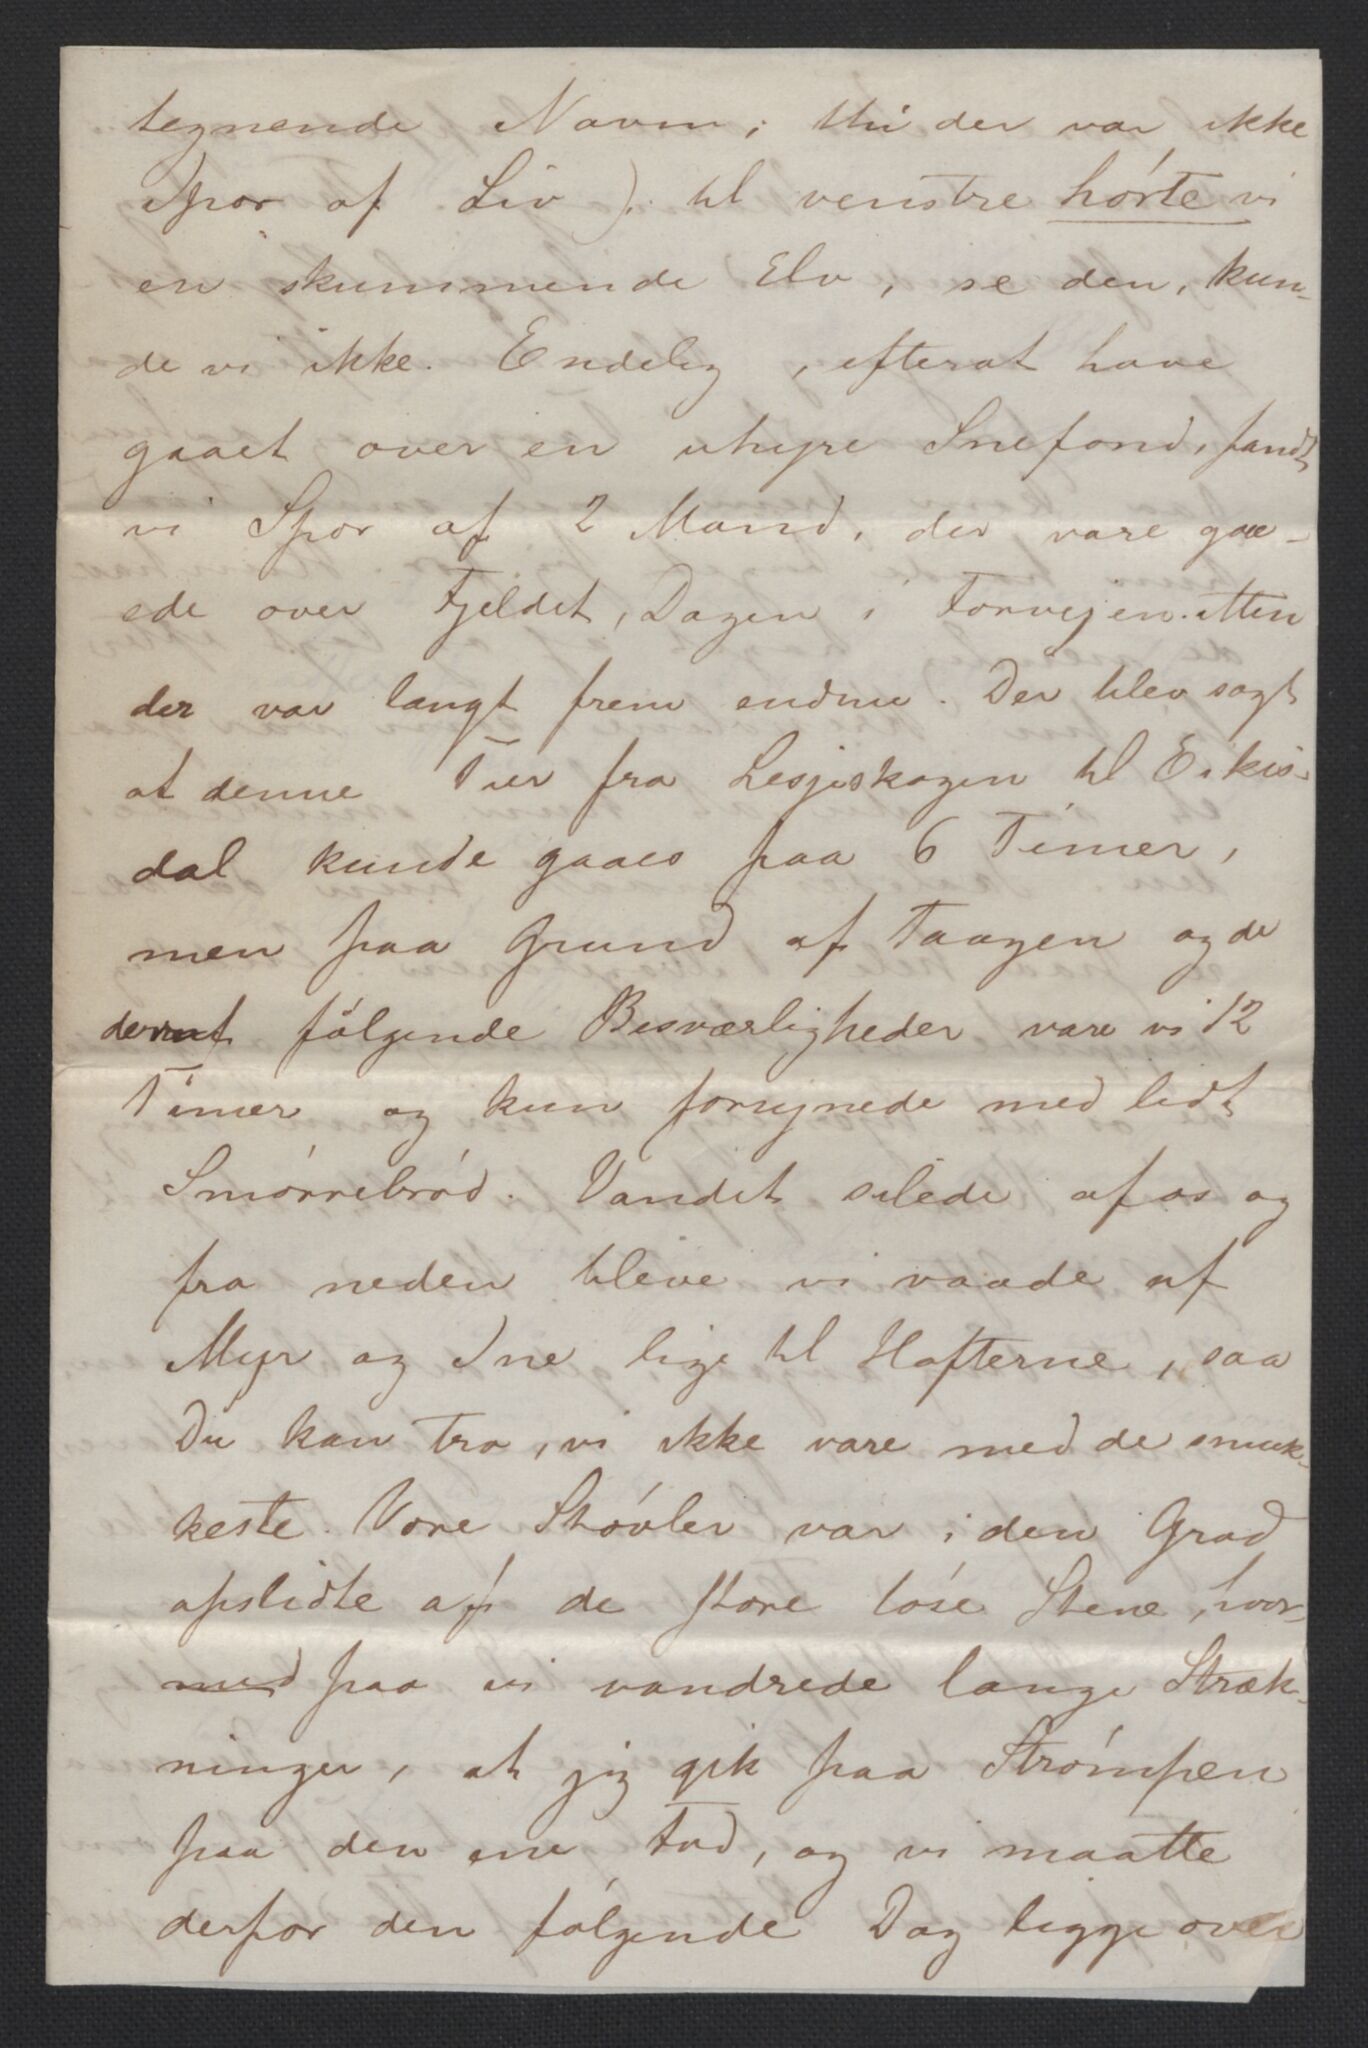 tegnende Navn; thi der var ikke
Spor af Liv). til venstre hórte vi
en skummende Elv, se den, kun-
de vi ikke. Endelig, efterat have
gaaet over en uhyre Snefond, fandt
vi Spor af 2 Mand, der vare gaa-
ede over Fjeldet, Dagen i Forvejen. Men
der var langt frem endnu. Der blev sagt
at denne Tur fra Lesjeskogen til Eikis-
dal kunde gaaes paa 6 Timer,
men paa Grund af Taagen og de
deraf fölgende Besværligheder vare vi 12
Timer og kun forsynede med lidt
Smórrebród. Vandet silede af os og
fra neden bleve vi vaade af
Myr og Sne lige til Hofterne, saa
Du kan tro, vi ikke vare med de smuk-
keste. Vore Stóvler var i den Grad
opslidte af de store lóse Stene, hvor-
med paa vi vandrede lange Stræk-
ninger, at jeg gik paa Strómpen
paa den ene Fod, og vi maatte
derfor den fólgende Dag ligge over